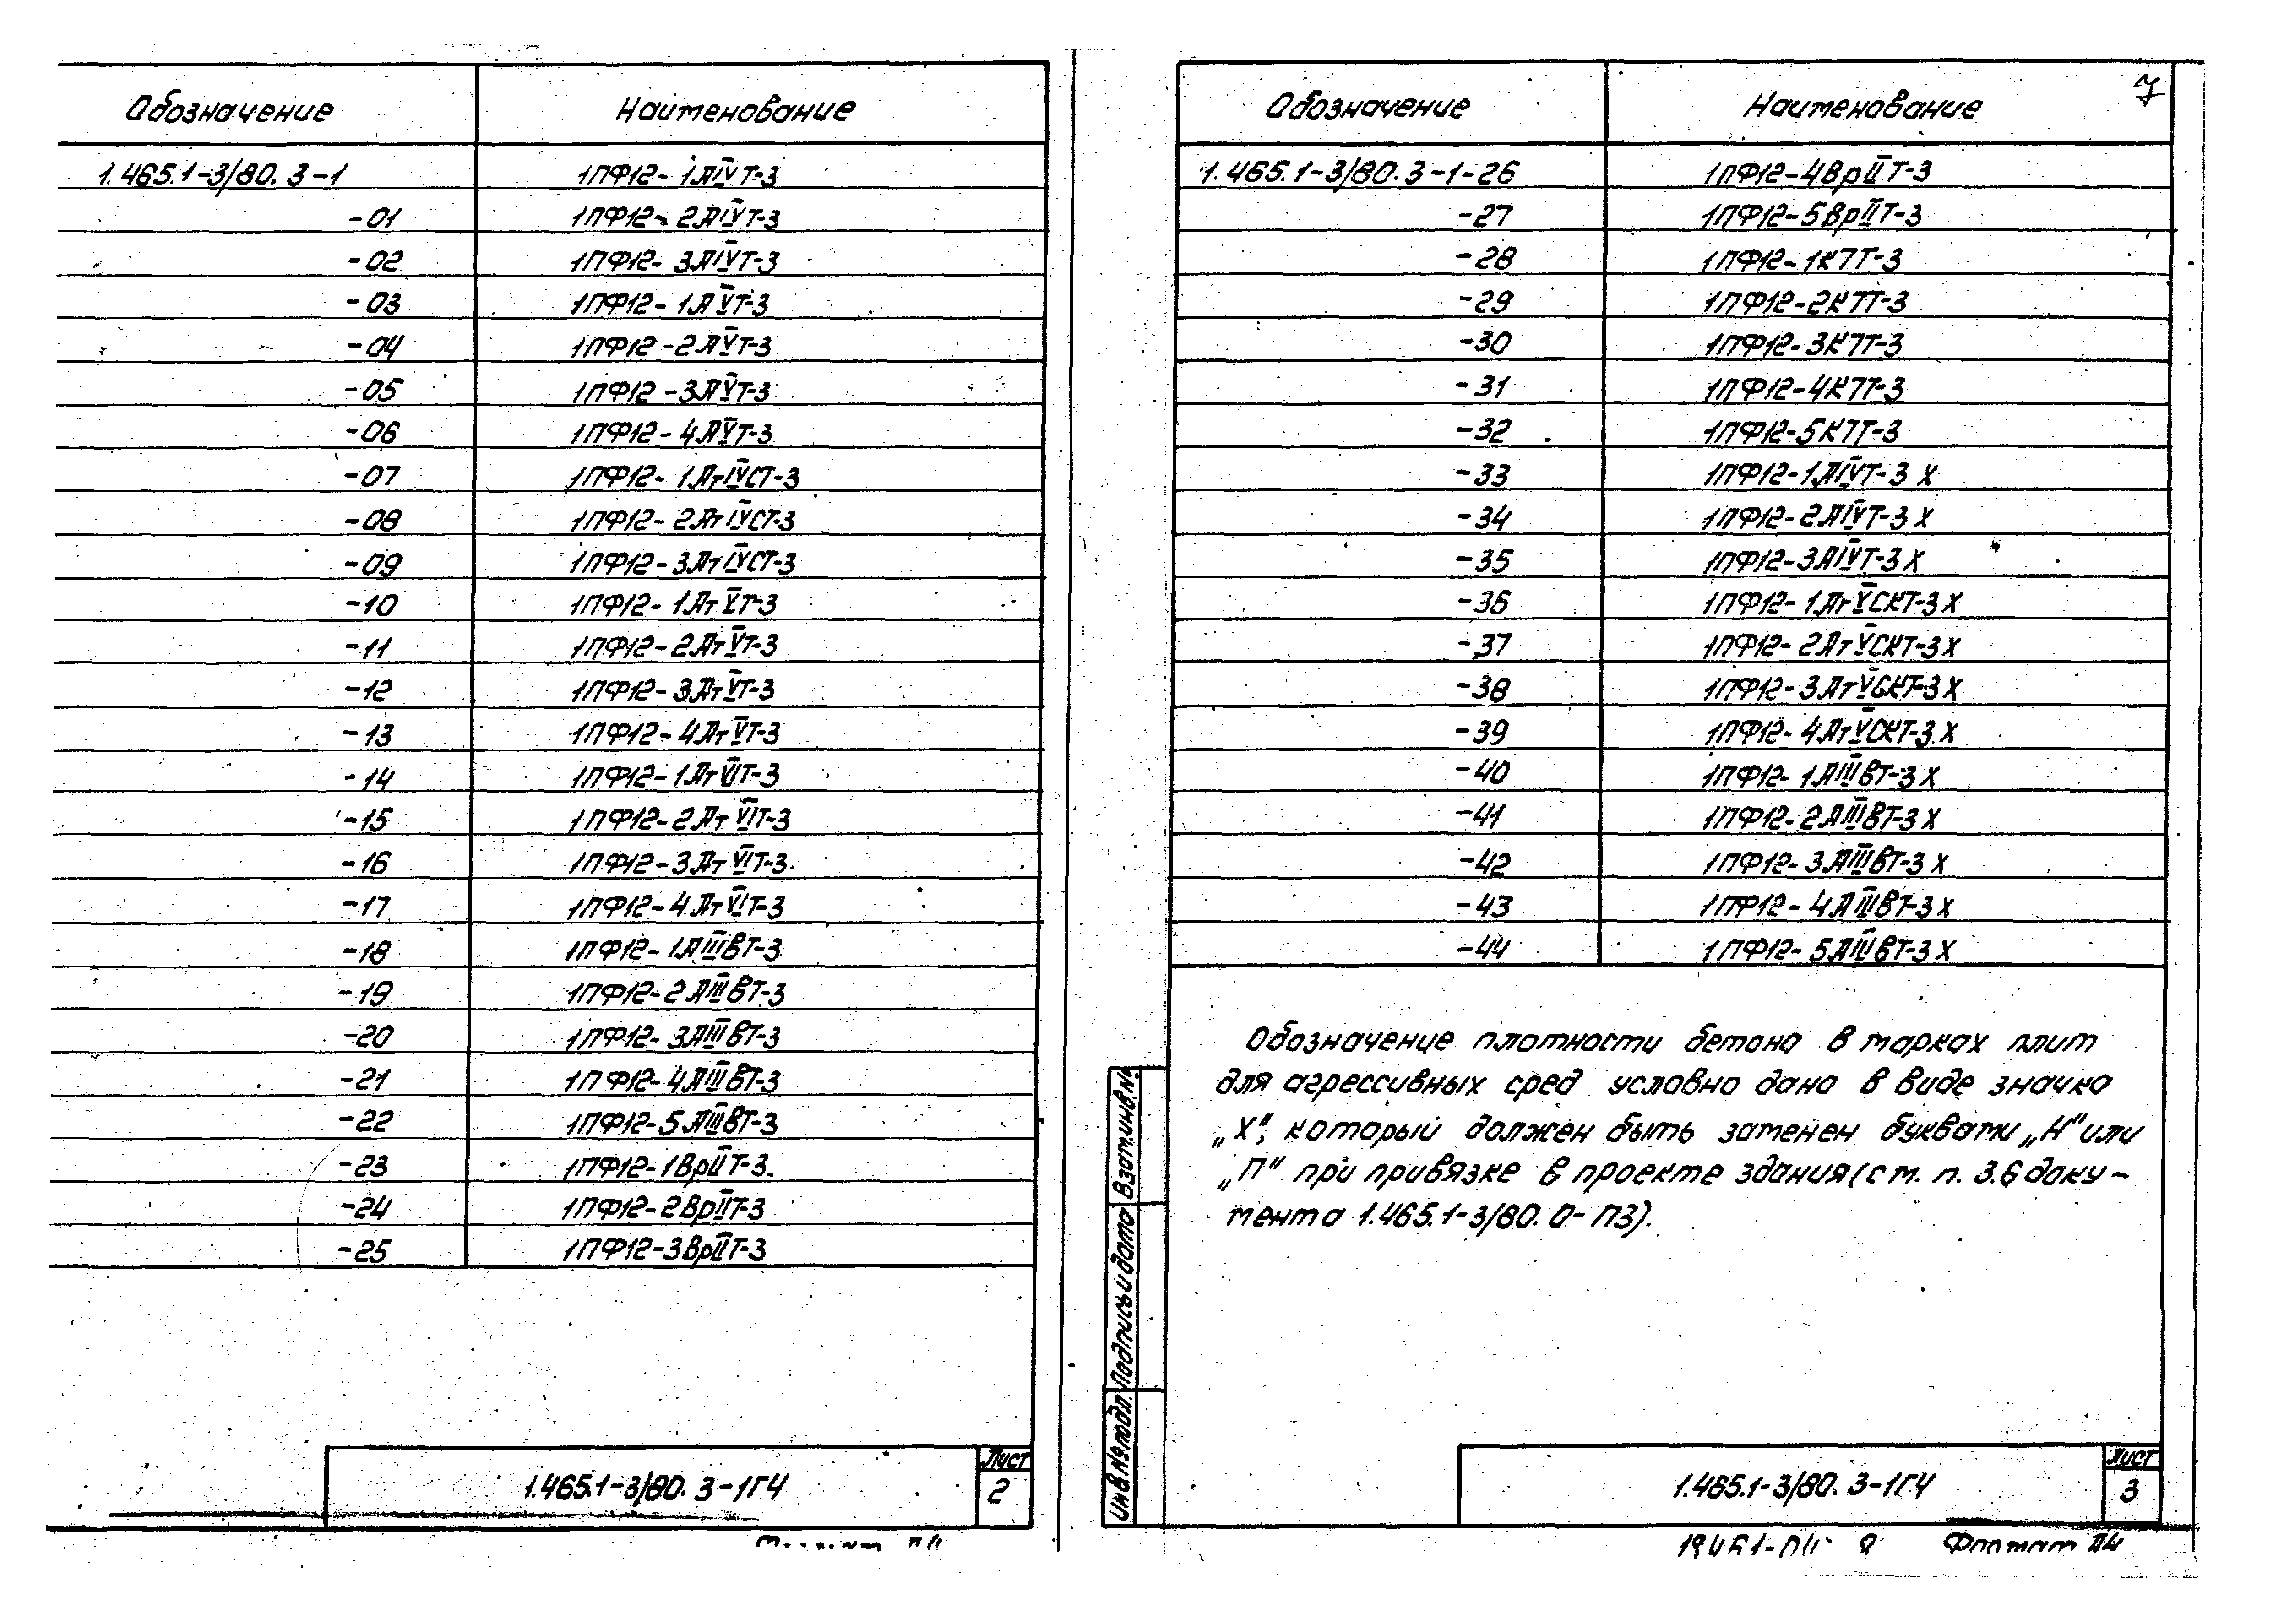 Обозначение Наименование
1.465.1-3/80.3-1 1ПФ12-1АIVТ-3
-01 1ПФ12-2АIVТ-3
-02 1ПФ12-3АIVТ-3
-03 1ПФ12-1АVТ-3
-04 1ПФ12-2АVТ-3
-05 1ПФ12-3АVТ-3
-06 1ПФ12-4АVТ-3
-07 1ПФ12-1АтIVСТ-3
-08 1ПФ12-2АтIVСТ-3
-09 1ПФ12-3АтIVСТ-3
-10 1ПФ12-1АтVТ-3
-11 1ПФ12-2АтVТ-3
-12 1ПФ12-3АтVТ-3
-13 1ПФ12-4АтVТ-3
-14 1ПФ12-1АтVIТ-3
-15 1ПФ12-2АтVIТ-3
-16 1ПФ12-3АтVIТ-3
-17 1ПФ12-4АтVIТ-3
-18 1ПФ12-1АIIIвТ-3
-19 1ПФ12-2АIIIвТ-3
-20 1ПФ12-3АIIIвТ-3
-21 1ПФ12-4АIIIвТ-3
-22 1ПФ12-5АIIIвТ-3
-23 1ПФ12-1ВрIIТ-3
-24 1ПФ12-2ВрIIТ-3
-25 1ПФ12-3ВрIIТ-3
1.465.1-3/80.3-1ГЧ
Лист
2
7
Обозначение Наименование
1.465.1-3/80.3-1-26 1ПФ12-4ВрIIТ-3
-27 1ПФ12-5ВрIIТ-3
-28 1ПФ12-1К7Т-3
-29 1ПФ12-2К7Т-3
-30 1ПФ12-3К7Т-3
-31 1ПФ12-4К7Т-3
-32 1ПФ12-5К7Т-3
-33 1ПФ12-1АIVТ-3Х
-34 1ПФ12-2АIVТ-3Х
-35 1ПФ12-3АIVТ-3Х
-36 1ПФ12-1АтVСКТ-3Х
-37 1ПФ12-2АтVСКТ-3Х
-38 1ПФ12-3АтVСКТ-3Х
-39 1ПФ12-4АтVСКТ-3Х
-40 1ПФ12-1АIIIвТ-3Х
-41 1ПФ12-2АIIIвТ-3Х
-42 1ПФ12-3АIIIвТ-3Х
-43 1ПФ12-4АIIIвТ-3Х
-44 1ПФ12-5АIIIвТ-3Х
Обозначение плотности бетона в марках плит
для агрессивных сред условно дано в виде значка
„Х", который должен быть заменен буквами „Н" или
„П" при привязке в проекте здания (см. п. 3.6 доку-
мента 1.465.1-3/80.0-ПЗ).
Инв.№подл. Подпись и дата Взам.инв.№
1.465.1-3/80.3-1ГЧ
Лист
3
Формат А4